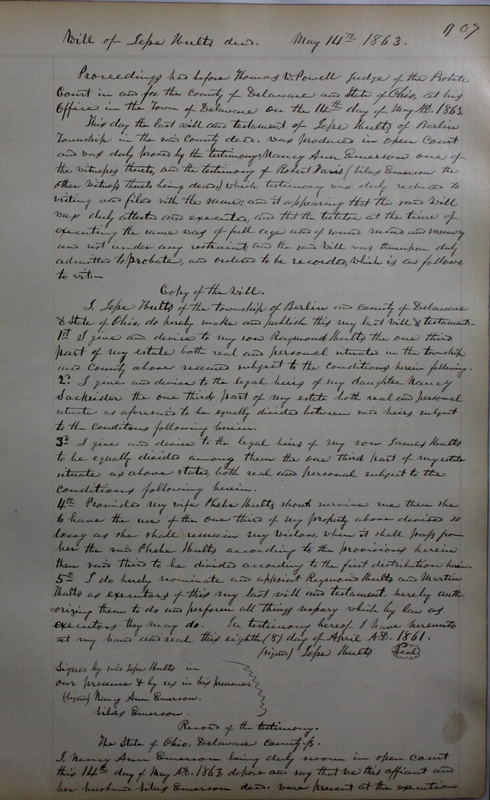 907
Will of Jesse Hults decd. May 14th 1863.
Proceedings had before Thomas W. Powell Judge of the Probate
Court in and for the County of Delaware and State of Ohio, at his
Office in the Town of Delaware on the 14th day of May A.D. 1863.
This day the last will and testament of Jesse Hults of Berlin
Township in the said County decd. was produced in open Court
and was duly proved by the testimony Nancy Ann Emerson one of
the witnesses thereto, and the testimony of Robert Faris (Silas Emerson the
other witness thereto being dead,) which testimony was duly reduced to
writing and filed with the same; and it appearing that the said Will
was duly attested and executed, and that the testator at the time of
executing the same was of full age and of sound mind and memory
and not under any restraint, and the said Will was thereupon duly
admitted to probate, and ordered to be recorded, which is as follows
to wit:—
Copy of the Will.
I, Jesse Hults of the township of Berlin and County of Delaware
& State of Ohio do hereby make and publish this my last Will & testament.
1st I give and devise to my son Raymond Hults the one third
part of my estate both real and personal situate in the township
and County above named subject to the conditions herein following.
2d I give and devise to the legal heirs of my daughter Nancy
Sackrider the one third part of my estate both real and personal
situate as aforesaid to be equally divided between said heirs subject
to the conditions following herein.
3d I give and devise to the legal heirs of my son James Hults
to be equally divided among them the one third part of my estate
situate as above stated, both real and personal subject to the
conditions following herein.
4th Provided my wife Phebe Hults should survive me then she
to have the use of the one third of my property above devised so
long as she shall remain my widow, when it shall pass from
her the said Phebe Hults according to the provisions herein
then said third to be divided according to the first distribution herein.
5th I do hereby nominate and appoint Raymond Hults and Martin
Hults as executors of this my last will and testament, hereby auth
orizing them to do and perform all things nessary which by law as
executors they may do. In testimony hereof I have hereunto
set my hand and seal this eighth (8) day of April A.D. 1861.
(signed) Jesse Hults Seal
Signed by said Jesse Hults in
our presence & by us in his presence
(signed) Nancy Ann Emerson.
Silas Emerson.
Record of the testimony.
The State of Ohio, Delaware County ss.
I, Nancy Ann Emerson being duly sworn in open court
this 14th day of May A.D. 1863 depose and say that we this affiant and
her husband Silas Emerson decd. were present at the execution